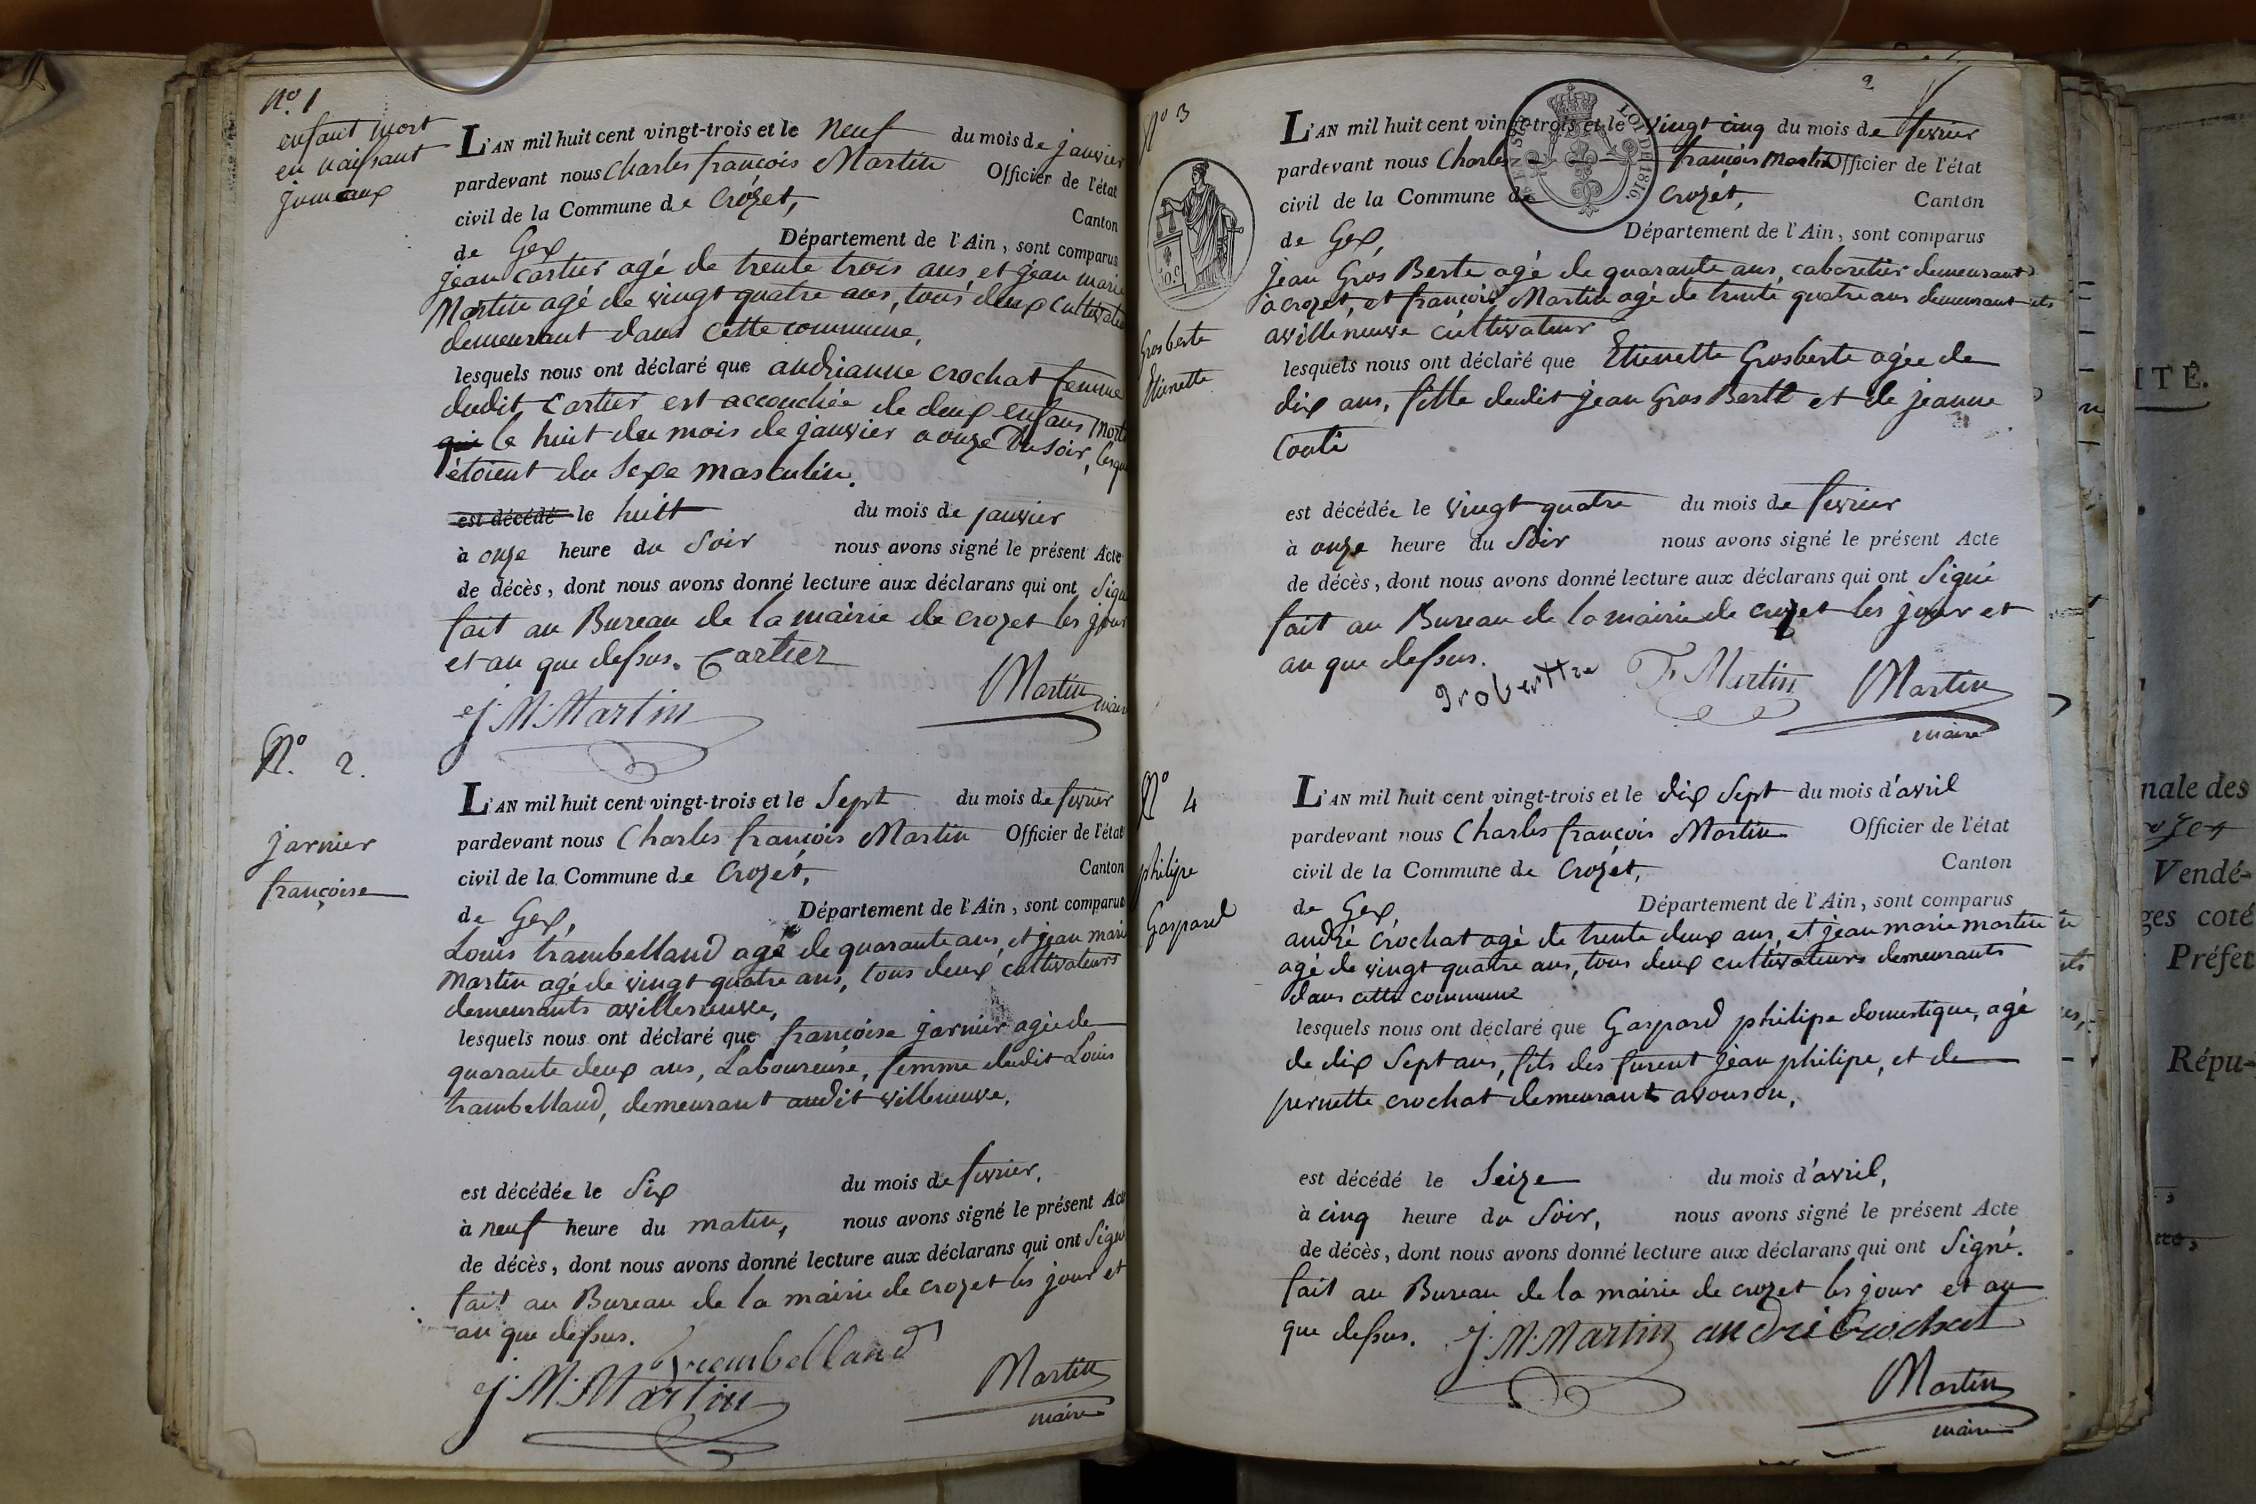 N.° 1
enfant mort
en naissant
jumeaux
L'AN mil huit cent vingt-trois et le neuf du mois de janvier
pardevant nous Charles françois Martin Officier de l'état
civil de la Commune de Crozet, Canton
de Gex, Département de l'Ain, sont comparus
jean cartier agé de trente trois ans et jean marie
Martin agé de vingt quatre ans, tous deux cultivate
demeurant dans cette commune,
lesquels nous ont déclaré que andrianne crochat femme
dudit cartier est accouchée de deux enfans morts
qui le huit du mois de janvier a onze du soir, lesqu
étoient du sexe masculin.
est décédé le huit du mois de janvier
à onze heure du soir nous avons signé le présent Acte
de décès, dont nous avons donné lecture aux déclarans qui ont signé
fait au Bureau de la mairie de crozet les jour
et an que dessus. Cartier
J. M. Martin Martin maire
N.° 2.
jarnier
françoise
L'AN mil huit cent vingt-trois et le sept du mois de fevrier
pardevant nous Charles françois Martin Officier de l'état
civil de la Commune de Crozet, Canton
de Gex, Département de l'Ain, sont comparus
Louis trambelland agé de quarante ans, et jean marie
martin agé de vingt quatre ans, tous deux cultivateurs
demeurants a villeneuve,
lesquels nous ont déclaré que françoise jarnier agée de
quarante deux ans, Laboureuse, femme dudit Louis
trambelland, demeurant audit villeneuve.
est décédée le six du mois de fevrier,
à neuf heure du matin, nous avons signé le présent Acte
de décès, dont nous avons donné lecture aux déclarans qui ont signé
fait au Bureau de la mairie de crozet les jour et
an que dessus. Trembelland
J. M. Martin Martin
maire
2
N° 3
Grosberte
Etienette
L'AN mil huit cent vingt-trois et le vingt cinq du mois de fevrier
pardevant nous Charles françois Martin Officier de l'état
civil de la Commune de Crozet, Canton
de Gex, Département de l'Ain, sont comparus
LOI DE 1816.
jean Gros Berte agé de quarante ans, cabaretier demeurant
a crozet, et françois Martin agé de trente quatre ans demeurant
a villeneuve cultivateur
lesquels nous ont déclaré que Etienette Grosberte agée de
dix ans, fille dudit jean Gros Berte et de jeanne
Conti
est décédée le vingt quatre du mois de fevrier
à onze heure du soir nous avons signé le présent Acte
de décès, dont nous avons donné lecture aux déclarans qui ont signé
fait au Bureau de la mairie de crozet les jour et
an que dessus.
F. Martin Martin
maire
N° 4
philipe
Gaspard
L'AN mil huit cent vingt-trois et le dix sept du mois d'avril
pardevant nous Charles françois Martin Officier de l'état
civil de la Commune de Crozet, Canton
de Gex, Département de l'Ain, sont comparus
andré Crochat agé de trente deux ans, et jean marie martin
agé de vingt quatre ans, tous deux cultivateurs demeurants
dans cette commune
lesquels nous ont déclaré que Gaspard philipe domestique, agé
de dix sept ans, fils des furent jean philipe, et de
pernette crochat demeurant a vouson,
est décédé le seize du mois d'avril,
à cinq heure du soir, nous avons signé le présent Acte
de décès, dont nous avons donné lecture aux déclarans qui ont signé.
fait au Bureau de la mairie de crozet les jour et an
que dessus. J. M. Martin andré Crochat
Martin
maire
ITÉ.
nale des
Vendé-
ges coté
Préfet
Répu-